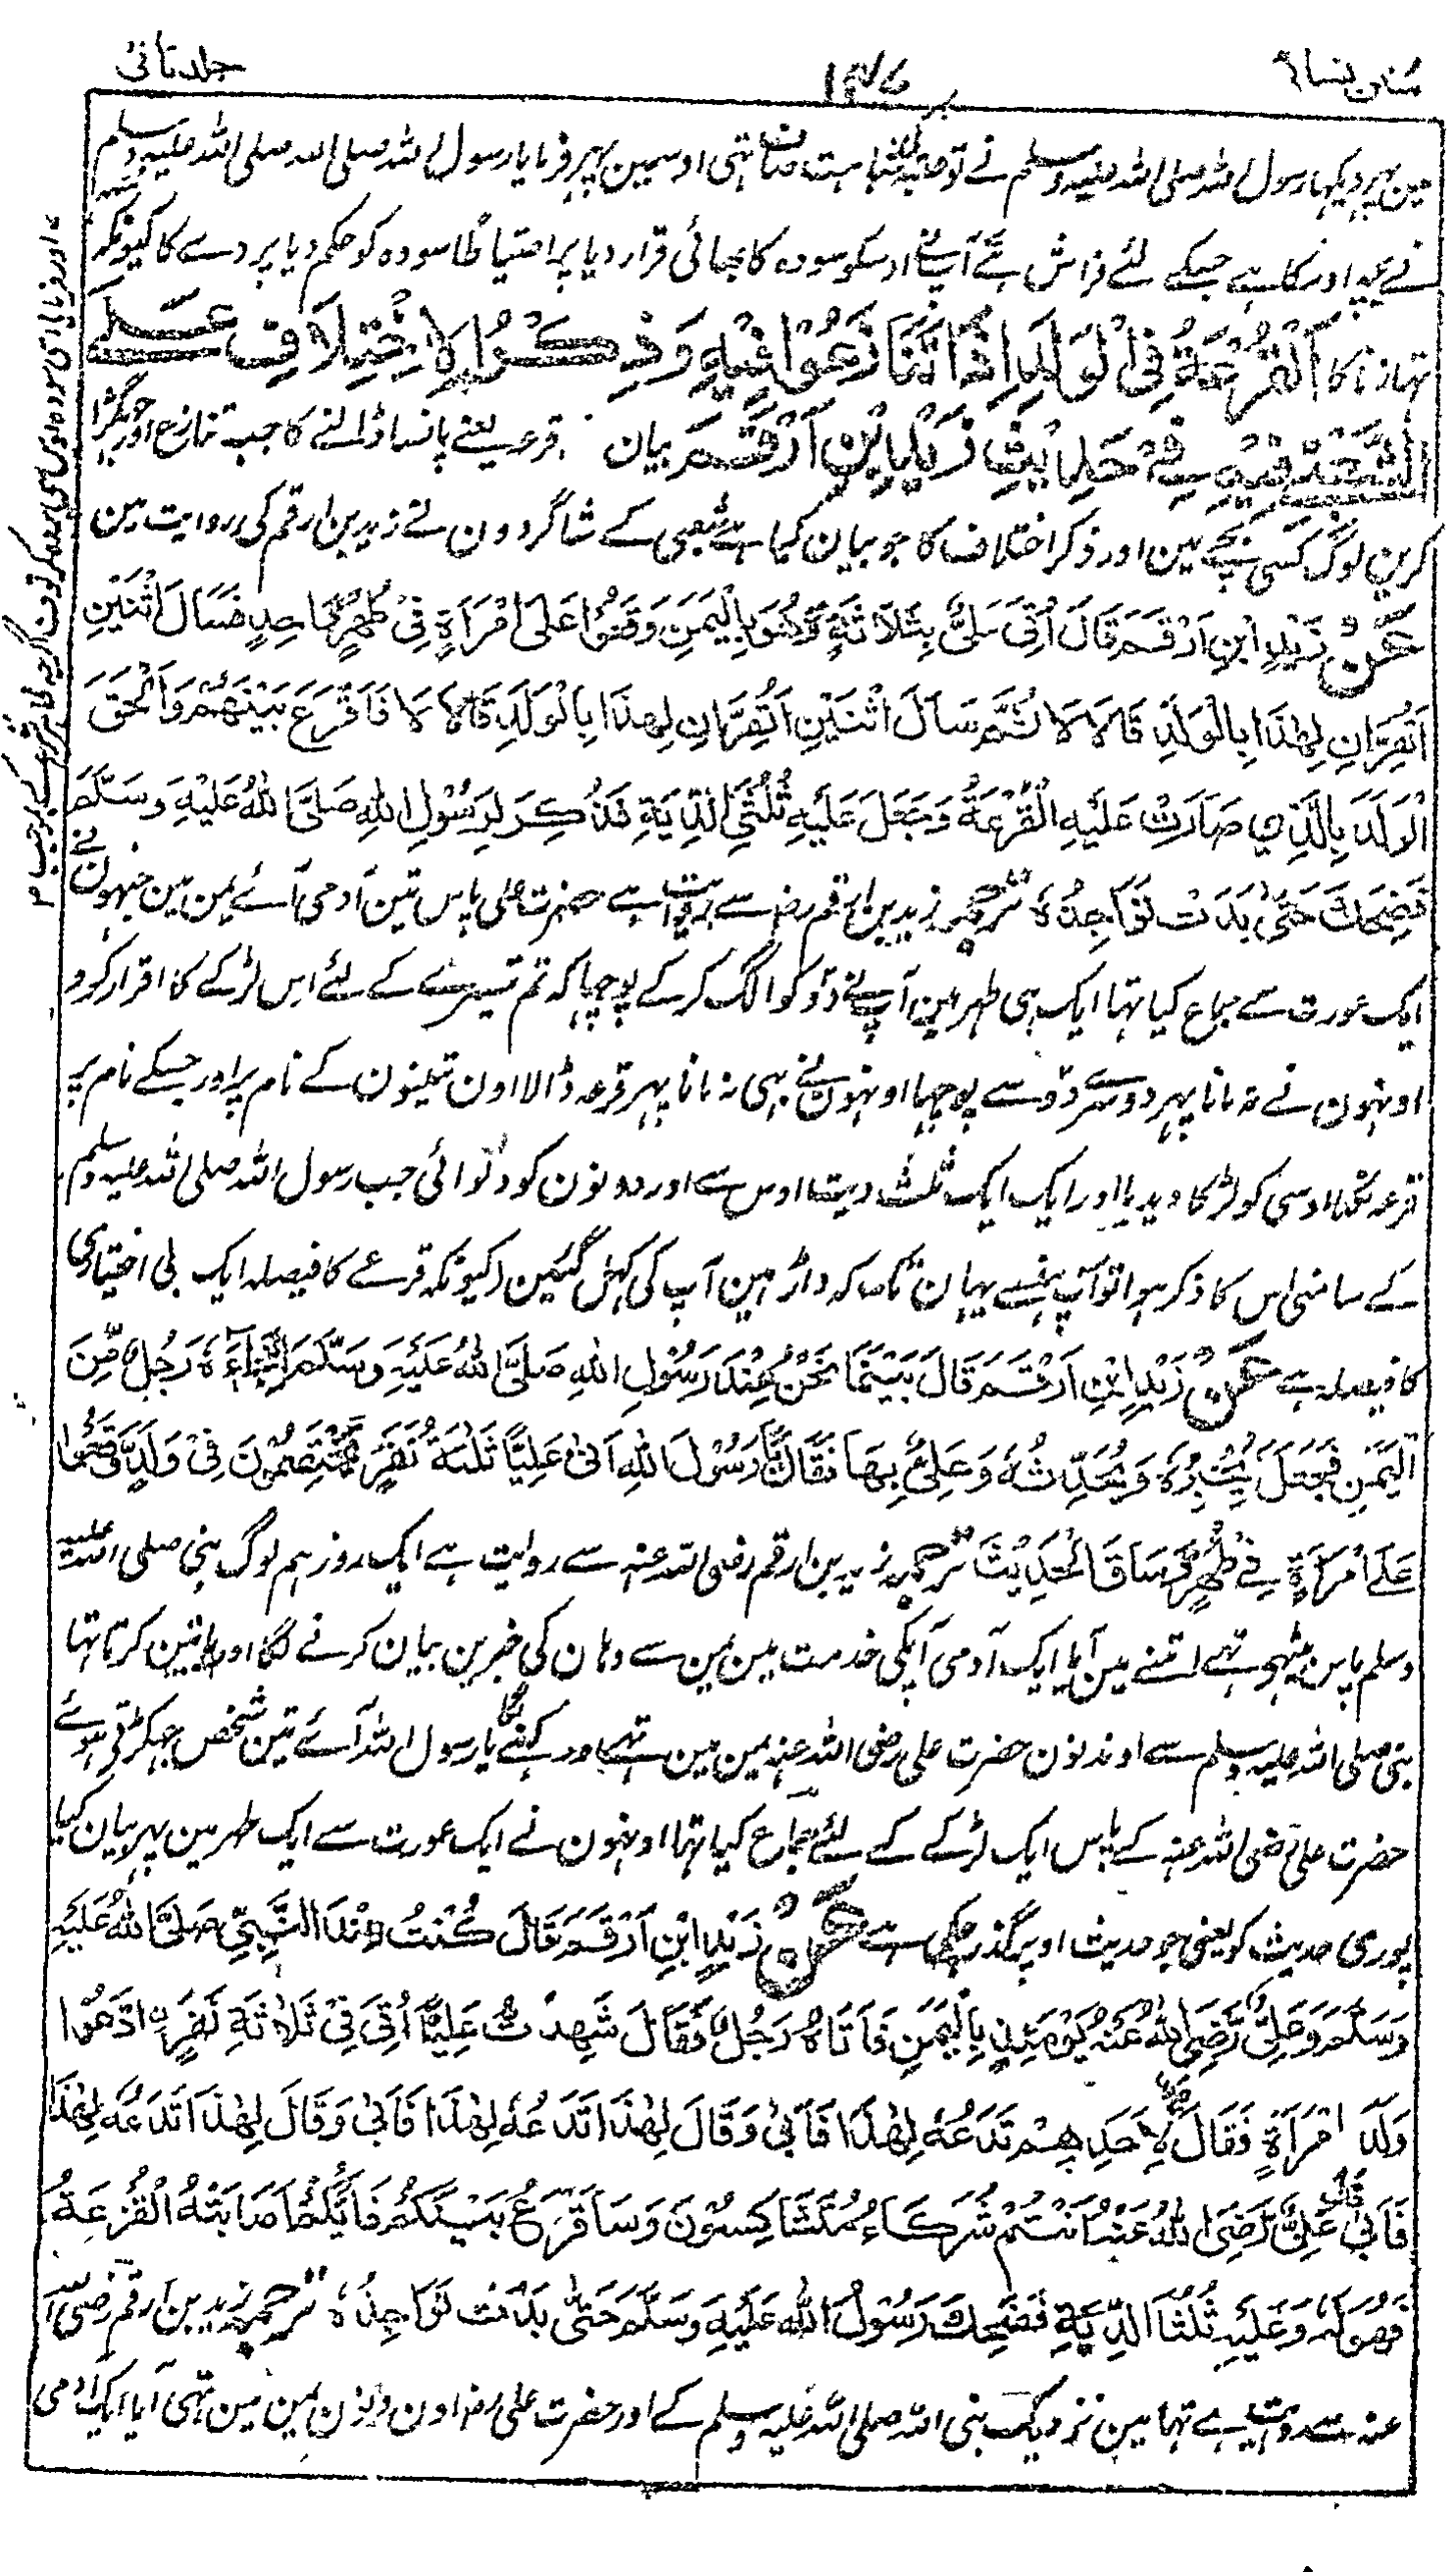 سنن نسائی
جلد ثانی
مین پہر دیکہا رسول اللہ صلی اللہ علیہ وسلم نے تو عتبہ کی مشابہت صاف تہی اوسمین پہر فرمایا رسول اللہ صلی اللہ صلی اللہ علیہ وسلم
نے بچہ اوسکا ہے جسکے لئے فراش ہے آپ نے اوسکو سودہ کا بھائی قرار دیا پر احتیاطاً سودہ کو حکم دیا پردے کا کیونکہ
تہا زنا کا اَلْقُرْعَةُ فِی الْوَلَدِ اِذَا تَنَازَعُوْا فِیْهِ وَذِكْرُ الْاِخْتِلَافِ عَلَى
الشَّعْبِیِّ فِیْهِ فِیْ حَدِیْثِ زَیْدِ ابْنِ اَرْقَمَ بیان قرعہ یعنے پانسا ڈالنے کا جب تنازع اور جھگڑا
کرین لوگ کسی بچے مین اور ذکر اختلاف کا جو بیان کیا ہے شعبی کے شاگردون نے زید بن ارقم کی روایت مین
عَنْ زَیْدِ ابْنِ اَرْقَمَ قَالَ اُتِیَ عَلِیٌّ بِثَلَاثَةٍ وَّهُوَ بِالْیَمَنِ وَقَعُوْا عَلَى امْرَاَةٍ فِیْ طُهْرٍ وَّاحِدٍ فَسَاَلَ اثْنَیْنِ
اَتُقِرَّانِ لِهٰذَا بِالْوَلَدِ قَالَا لَا ثُمَّ سَاَلَ اثْنَیْنِ اَتُقِرَّانِ لِهٰذَا بِالْوَلَدِ قَالَا لَا فَاَقْرَعَ بَیْنَهُمْ وَاَلْحَقَ
الْوَلَدَ بِالَّذِیْ صَارَتْ عَلَیْهِ الْقُرْعَةُ وَجَعَلَ عَلَیْهِ ثُلُثَیِ الدِّیَةِ فَذُكِرَ لِرَسُوْلِ اللهِ صَلَّى اللهُ عَلَیْهِ وَسَلَّمَ
فَضَحِكَ حَتّٰى بَدَتْ نَوَاجِذُهٗ ترجمہ زید بن ارقم رض سے روایت ہے حضرت علی پاس تین آدمی آئے یمن مین جنہون نے
ایک عورت سے جماع کیا تہا ایک ہی طہر مین آپ نے دو کو الگ کر کے پوچہا کہ تم تیسرے کے لئے اس لڑکے کا اقرار کرو
اونہون نے نہ مانا پہر دوسرے دو سے پوچہا اونہون نے بہی نہ مانا پہر قرعہ ڈالا اون تینون کے نام پر اور جسکے نام پر
قرعہ نکلا اوسی کو لڑکا دیدیا اور ایک ایک ثلث دیت اوس سے اور دونون کو دلوائی جب رسول اللہ صلی اللہ علیہ وسلم
کے سامنی اس کا ذکر ہوا تو آپ ہنسے یہان تک کہ داڑہین آپ کی کہل گئین (کیونکہ قرعے کا فیصلہ ایک بی اختیاری
کا فیصلہ ہے عَنْ زَیْدِ ابْنِ اَرْقَمَ قَالَ بَیْنَمَا نَحْنُ عِنْدَ رَسُوْلِ اللهِ صَلَّى اللهُ عَلَیْهِ وَسَلَّمَ اِذْ جَاءَهٗ رَجُلٌ مِّنَ
الْیَمَنِ فَجَعَلَ یُخْبِرُهٗ وَیُحَدِّثُهٗ وَعَلِیٌّ بِهَا فَقَالَ یَا رَسُوْلَ اللهِ اَتٰى عَلِیًّا ثَلٰثَةُ نَفَرٍ یَّخْتَصِمُوْنَ فِیْ وَلَدٍ وَّقَعُوْا
عَلَى امْرَاَةٍ فِیْ طُهْرٍ وَّسَاقَ الْحَدِیْثَ ترجمہ زید بن ارقم رضی اللہ عنہ سے روایت ہے ایک روز ہم لوگ نبی صلی اللہ علیہ
وسلم پاس بیٹہے تہے اتنے مین آیا ایک آدمی آپکی خدمت مین یمن سے وہان کی خبرین بیان کرنے لگا اور باتین کرتا تہا
نبی صلی اللہ علیہ وسلم سے اوندنون حضرت علی رضی اللہ عنہ یمن مین تہے اور کہنے لگا یا رسول اللہ آئے تین شخص جہگڑتے ہوئے
حضرت علی رضی اللہ عنہ کے پاس ایک لڑکے کے لئے جماع کیا تہا اونہون نے ایک عورت سے ایک طہر مین پہر بیان کیا
پوری حدیث کو یعنی جو حدیث اوپر گذر چکی ہے عَنْ زَیْدِ ابْنِ اَرْقَمَ قَالَ كُنْتُ عِنْدَ النَّبِیِّ صَلَّى اللهُ عَلَیْهِ
وَسَلَّمَ وَعَلِیٌّ رَّضِیَ اللهُ عَنْهُ یَوْمَئِذٍ بِالْیَمَنِ فَاَتَاهُ رَجُلٌ فَقَالَ شَهِدْتُّ عَلِیًّا اُتِیَ فِیْ ثَلَاثَةِ نَفَرٍ ادَّعَوْا
وَلَدَ امْرَاَةٍ فَقَالَ لِاَحَدِهِمْ تَدَعُهٗ لِهٰذَا فَاَبٰى وَقَالَ لِهٰذَا تَدَعُهٗ لِهٰذَا فَاَبٰى وَقَالَ لِهٰذَا تَدَعُهٗ لِهٰذَا
فَاَبٰى قَالَ عَلِیٌّ رَّضِیَ اللهُ عَنْهُ اَنْتُمْ شُرَكَاءُ مُتَشَاكِسُوْنَ وَسَاَقْرَعُ بَیْنَكُمْ فَاَیُّكُمْ اَصَابَتْهُ الْقُرْعَةُ
فَهُوَ لَهٗ وَعَلَیْهِ ثُلُثَا الدِّیَةِ فَضَحِكَ رَسُوْلُ اللهِ عَلَیْهِ وَسَلَّمَ حَتّٰى بَدَتْ نَوَاجِذُهٗ ترجمہ زید بن ارقم رضی اللہ
عنہ سے روایت ہے تہا مین نزدیک نبی اللہ صلی اللہ علیہ وسلم کے اور حضرت علی رض اون دنون یمن مین تہی آیا ایک آدمی